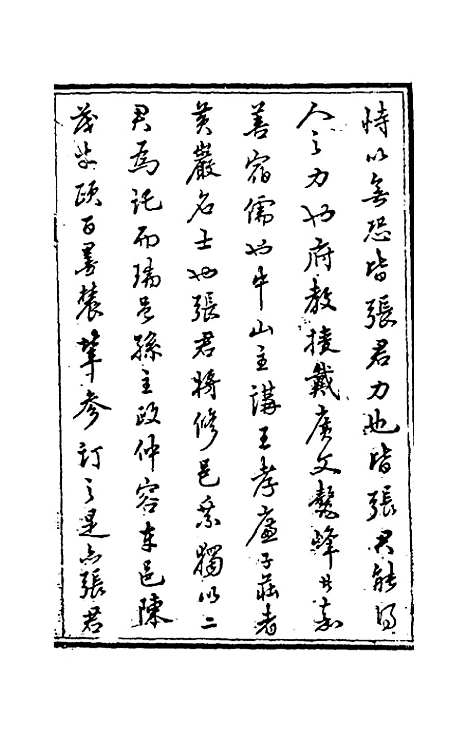 恃以無恐皆張君力也皆張君能得
人之力也府教授戴廣文鰲峰其嘉
善宿儒也中山主講王孝廉子莊者
黃巖名士也張君將修邑乘獨以二
君為託而瑞邑孫主政仲容本邑陳
茂才頤百墨農輩參訂之是亦張君